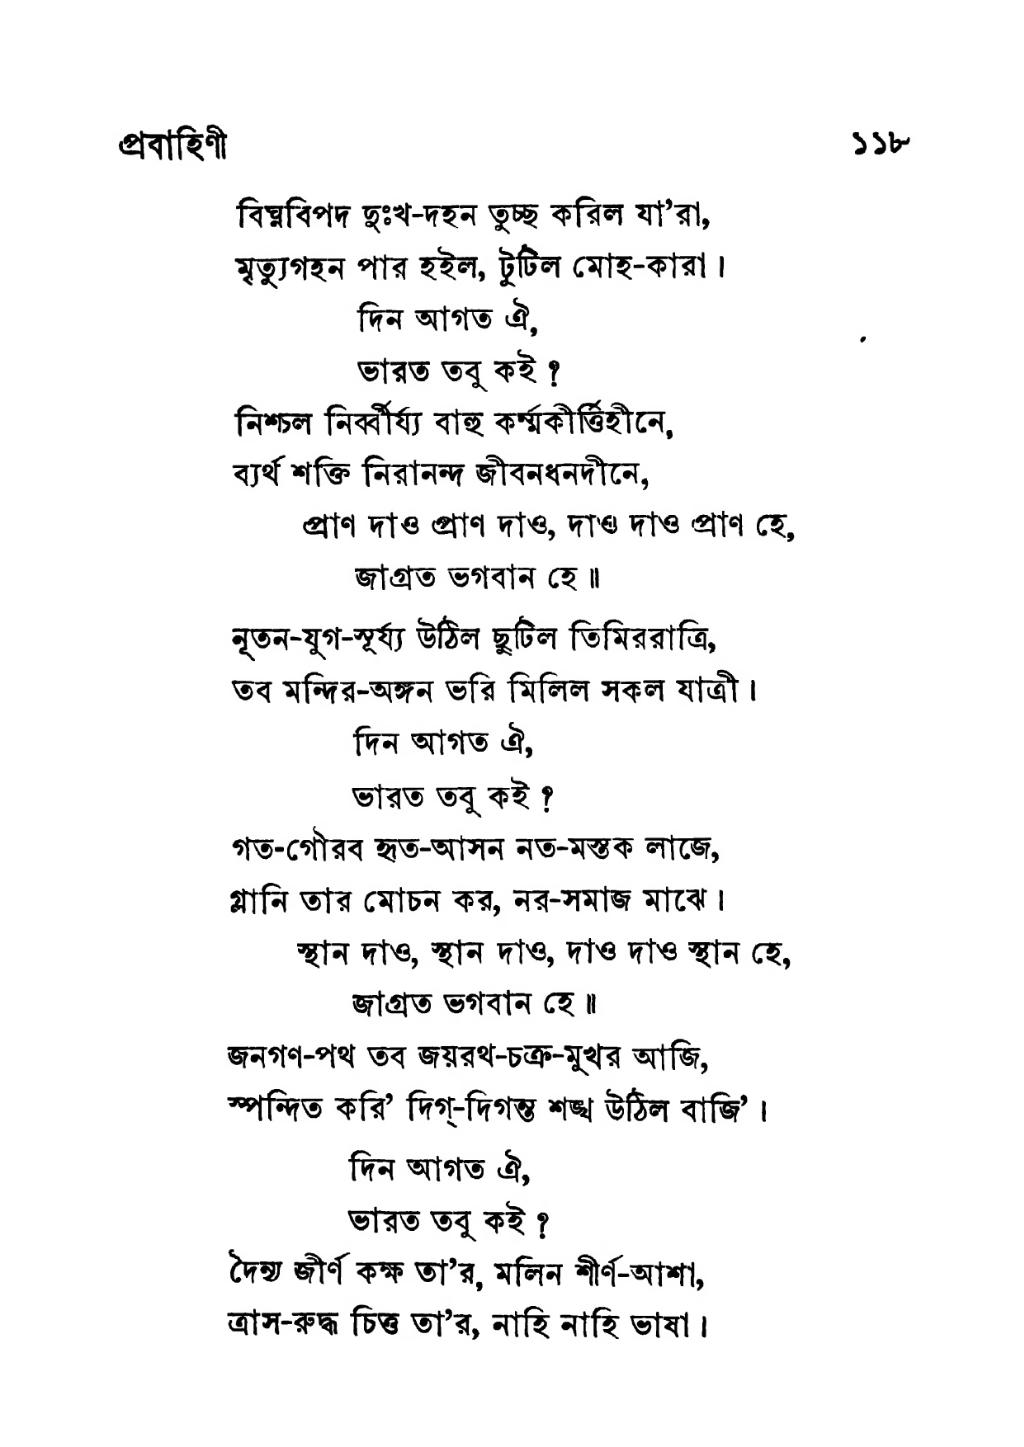 প্রবাহিণী ১১৮
বিঘ্নবিপদ দুঃখ-দহন তুচ্ছ করিল যা'রা,
মৃত্যুগহন পার হইল, টুটিল মোহ-কারা।
দিন আগত ঐ,
ভারত তবু কই ?
নিশ্চল নির্ব্বীর্য্য বাহু কর্ম্মকীর্ত্তিহীনে,
ব্যর্থ শক্তি নিরানন্দ জীবনধনদীনে,
প্রাণ দাও প্রাণ দাও, দাও দাও প্রাণ হে,
জাগ্রত ভগবান হে॥
নূতন-যুগ-সূর্য্য উঠিল ছুটিল তিমিররাত্রি,
তব মন্দির-অঙ্গন ভরি মিলিল সকল যাত্রী।
দিন আগত ঐ,
ভারত তবু কই ?
গত-গৌরব হৃত-আসন নত-মস্তক লাজে,
গ্লানি তার মোচন কর, নর-সমাজ মাঝে।
স্থান দাও, স্থান দাও, দাও দাও স্থান হে,
জাগ্রত ভগবান হে॥
জনগণ-পথ তব জয়রথ-চক্র-মুখর আজি,
স্পন্দিত করি' দিগ্-দিগন্ত শঙ্খ উঠিল বাজি'।
দিন আগত ঐ,
ভারত তবু কই ?
দৈন্য জীর্ণ কক্ষ তা'র, মলিন শীর্ণ-আশা,
ত্রাস-রুদ্ধ চিত্ত তা'র, নাহি নাহি ভাষা।